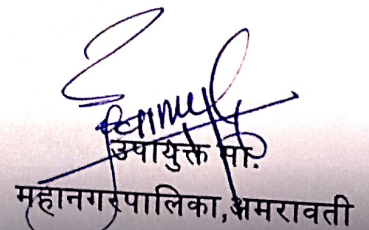 उपायुक्त
महानगरपालिका,अमरावती